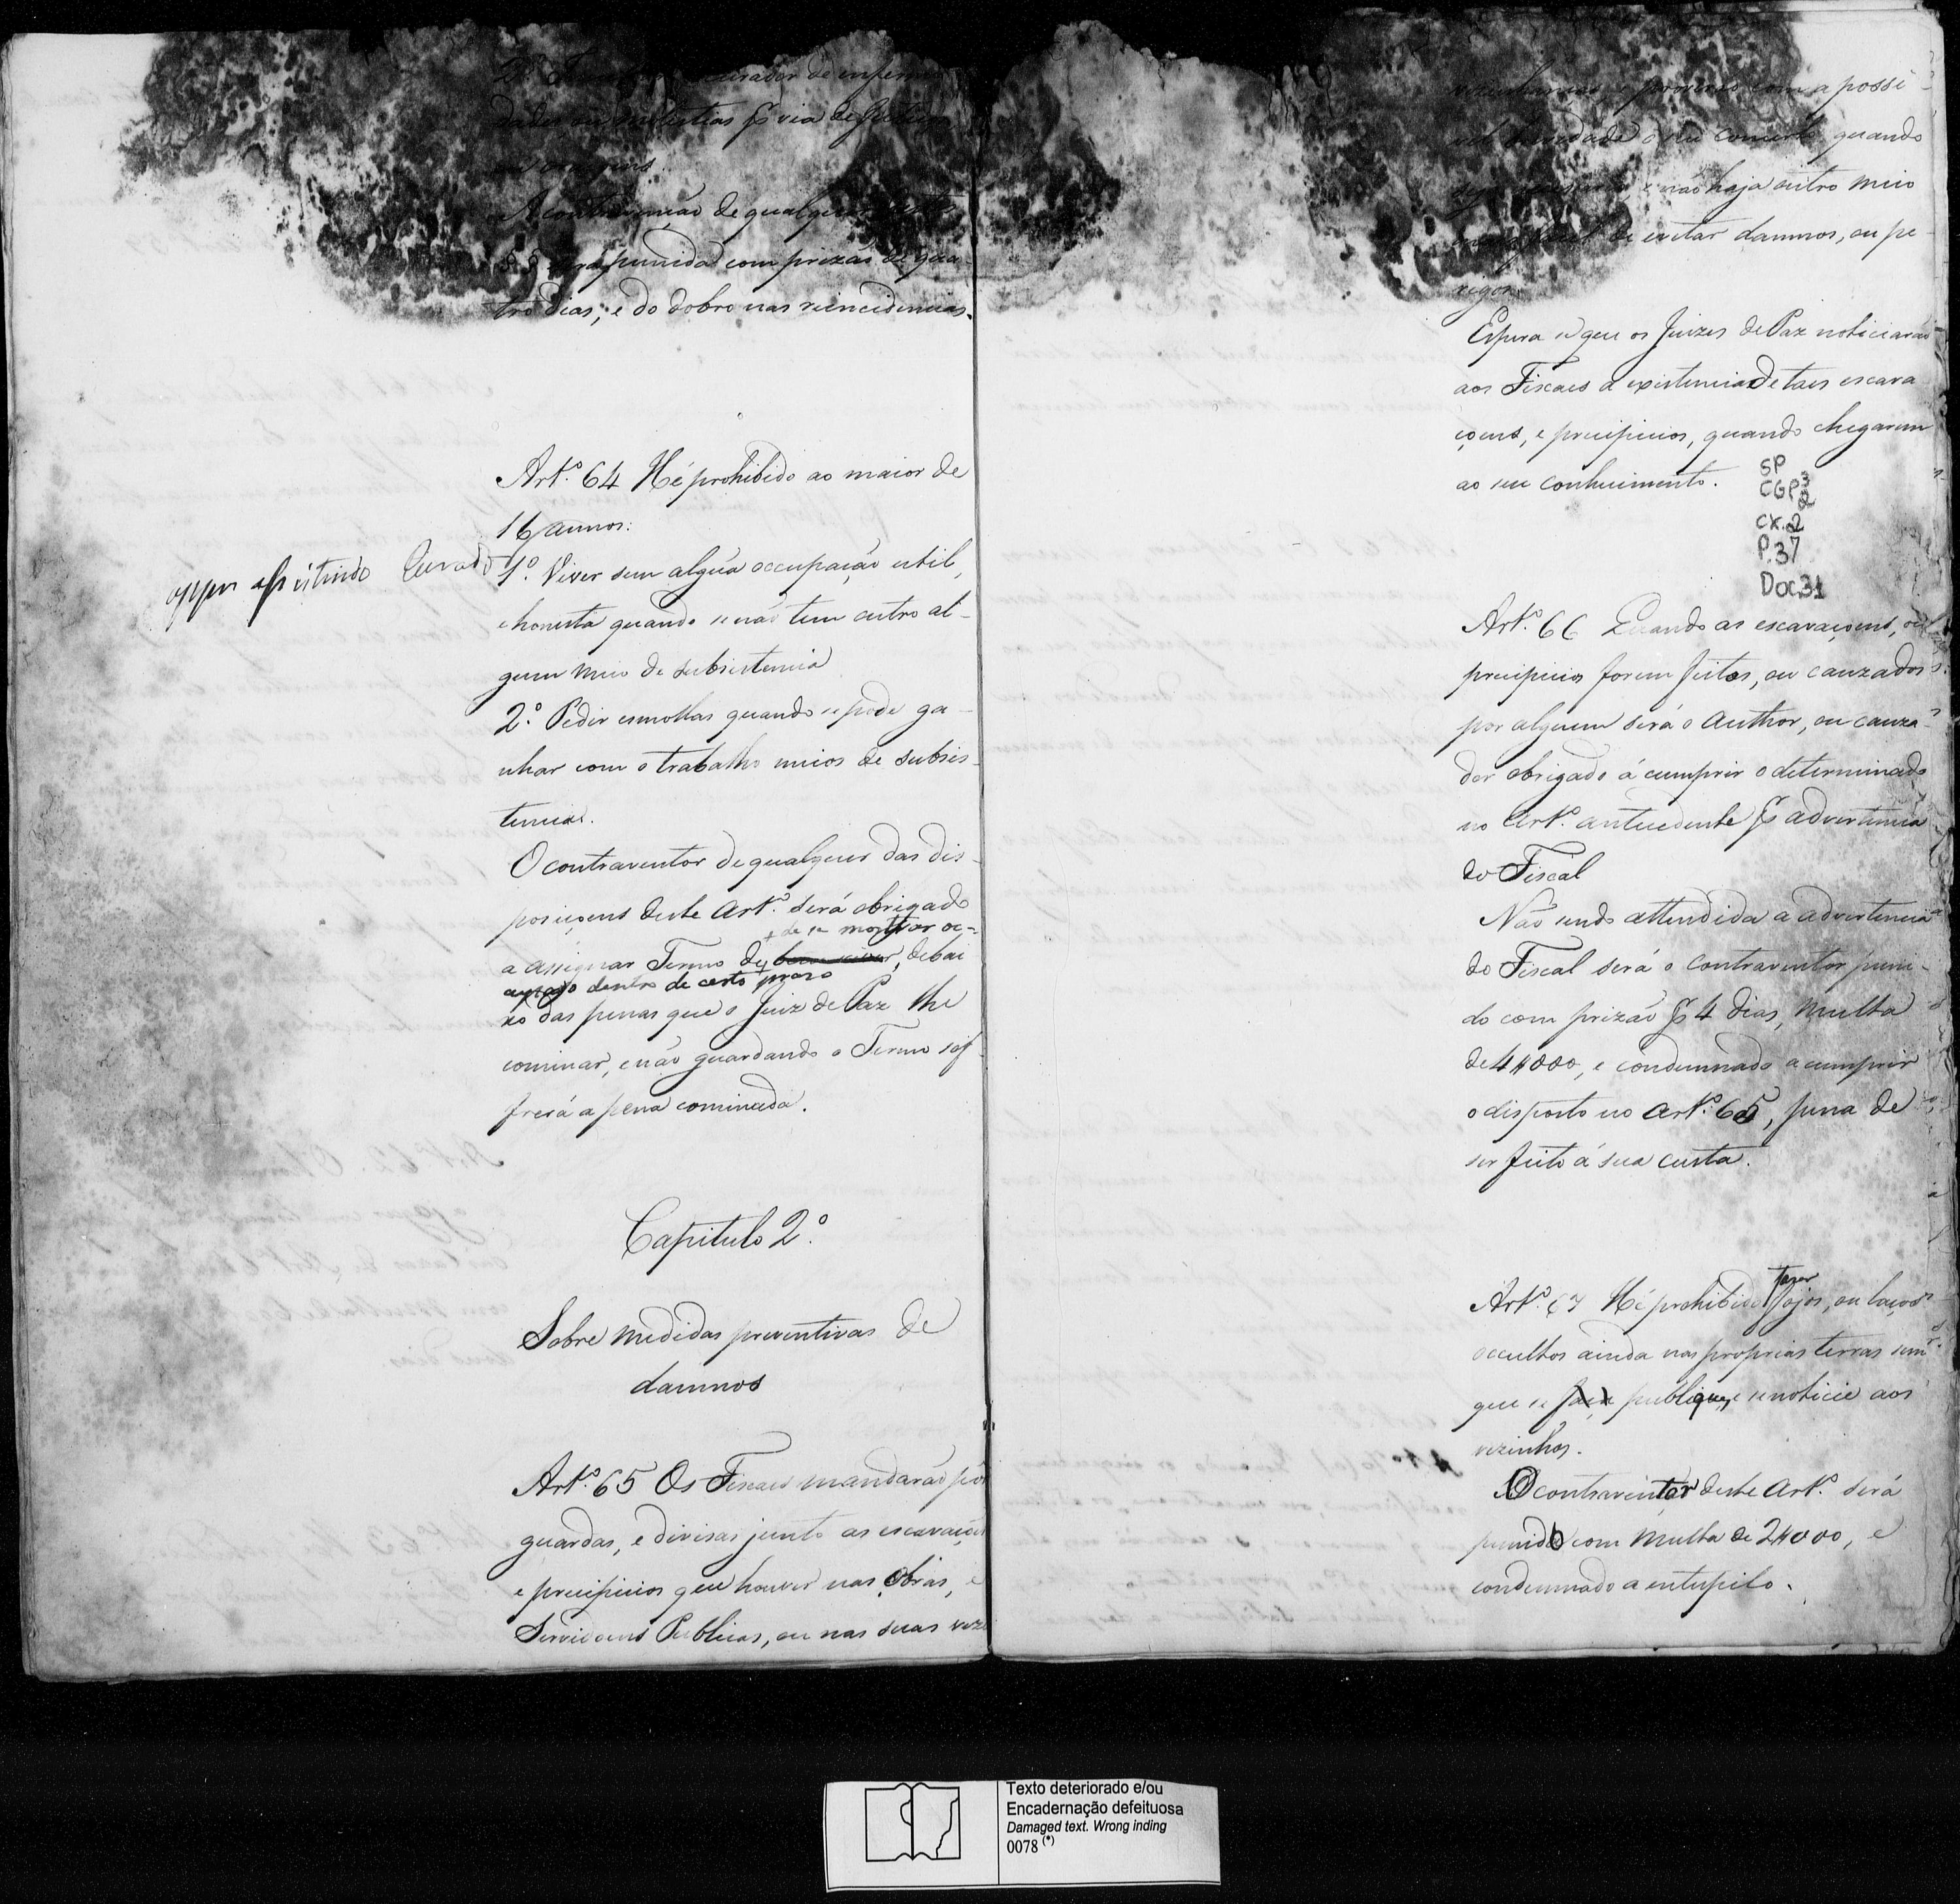 curador de enfermi
dades ou molestias pr via de feitiços
A contravenção de qualquer
será punida com prizão de qua
tro dias, e do dobro nas reincidencias.
Artº. 64 Hé prohibido ao maior de
16 annos:
1º. Viver sem algũa occupação util,
e honesta quando se não tem outro al-
gum meio de subsistencia
2º. Pedir esmollas quando se pode ga-
nhar com o trabalho meios de subsis-
tencia.
O contraventor de qualquer das dis-
posiçoens deste Artº. será obrigado
+ de se mostrar oc-
a assignar Termo de + bem viver, debai
cupado dentro de certo prazo
xo das penas que o Juiz de Paz lhe
cominar, e não guardando o Termo sof-
frerá a pena cominada.
Capitulo 2º.
Sobre medidas preventivas de
damnos
Artº. 65 Os Fiscaes mandarão pôr
guardas, e divisas junto as escavaçoẽs
e precipicios que houver nas obras, e
Servidoens Publicas, ou nas suas vizi
com a possi-
vel brevidade o seu concerto quando
não haja outro meio
de evitar damnos, ou pe-
rigos.
Espera se que os Juizes de Paz noticiarão
aos Fiscaes a existencia de taes escava
çoens, e precipicios, quando chegarem
ao seu conhecimento.
SP
CGP3
2
CX.2
P.37
Doc31
Artº. 66 Quando as escavaçoens, ou
precipicios forem feitos, ou cauzados
por alguem será o Author, ou cauza-
dor obrigado á cumprir o determinado
no Artº. antecedente pr advertencia
do Fiscal
Não sendo attendida a advertencia
do Fiscal será o contraventor puni-
do com prizão pr 4 dias, multa
de 4$000, e condemnado a cumprir
o disposto no Artº. 65, pena de
ser feito á sua custa.
fazer
Artº. 67 Hé prohibido fojos, ou laços
occultos ainda nas proprias terras sem
que se faça publique, e se noticie aos
vizinhos.
O contraventor deste Artº. será
punido com multa de 2$000, e
condemnado a entupilo.
Texto deteriorado e/ou
Encadernação defeituosa
Damaged text. Wrong inding
0078 (*)